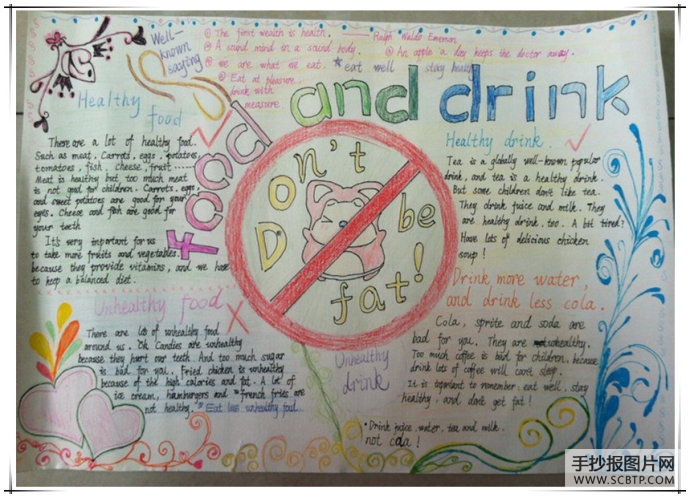 Well-known saying
The first wealth is health. —— Ralph Waldo Emerson
A sound mind in a sound body.
An apple a day keeps the doctor away.
We are what we eat. ★eat well stay healthy
Eat at pleasure.
drink with
measure.
food and drink
Healthy food
There are a lot of healthy food.
Such as meat. Carrots. eggs. potatoes,
tomatoes, fish. cheese, fruit ······
Meat is healthy but too much meat
is not good for children. Carrots. eggs,
and sweet potatoes are good for your
eyes. Cheese and fish are good for
your teeth
It's very important for us
to take more fruits and vegetables.
because they provide vitamins, and we have
to keep a balanced diet.
Don't be fat!
Healthy drink.
Tea is a globally well-known popular
drink, and tea is a healthy drink.
But some children don't like tea.
They drink juice and milk. They
are healthy drink, too. A bit tired?
Have lots of delicious chicken
soup!
Drink more water,
and drink less cola.
Cola, sprite and soda are
bad for you. They are unhealthy.
Too much coffee is bad for children, because
drink lots of coffee will can't sleep.
It is important to remember: eat well, stay
healthy, and don't get fat!
Unhealthy food
There are lot of unhealthy food
around us. Candies are unhealthy
because they hurt our teeth. And too much sugar
is bad for you. Fried chicken is unhealthy
because of the high calories and fat. A lot of
ice cream, hamburgers and french fries are
not healthy. Eat less unhealthy food.
Unhealthy
drink
Drink juice, water, tea and milk.
not cola!
手抄报图片网
WWW.SCBTP.COM